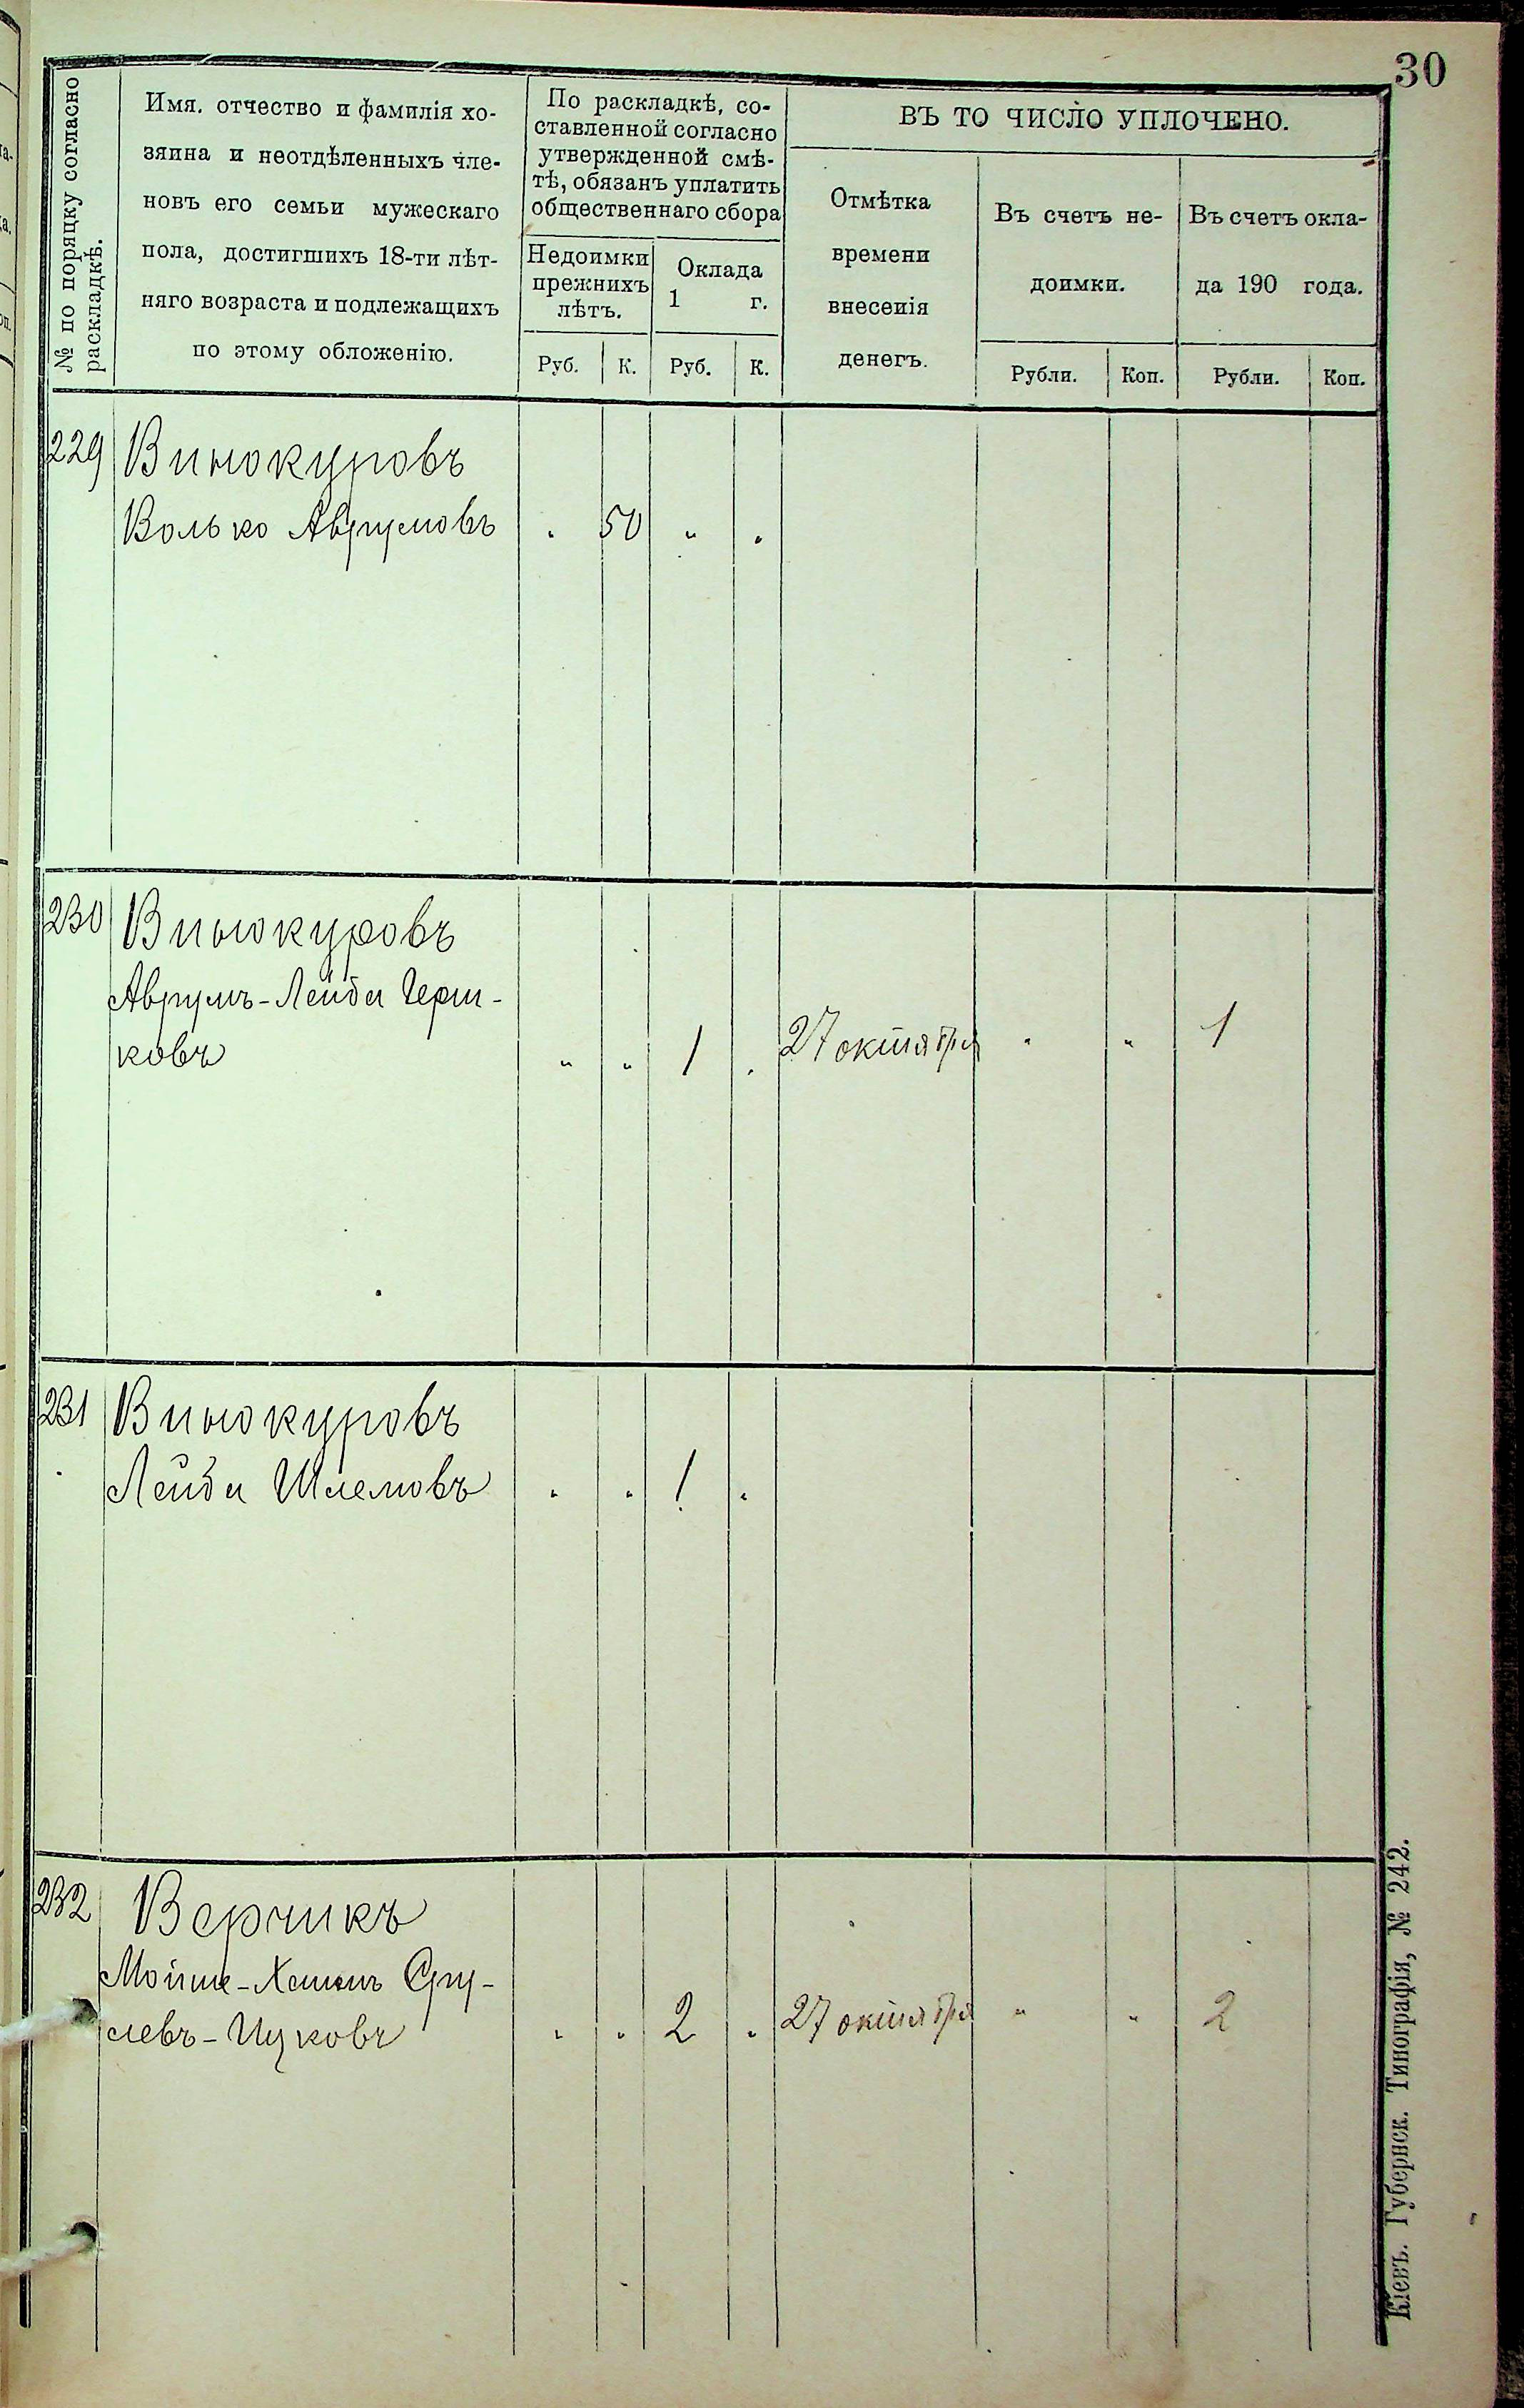 30
№ по поряцку согласно
раскладкѣ.
Имя. отчество и фамилія хо-
зяина и неотдѣленныхъ чле-
новъ его семьи мужескаго
пола, достигшихъ 18-ти лѣт-
няго возраста и подлежащихъ
по этому обложенію.
По раскладкѣ, со-
ставленной согласно
утвержденной смѣ-
тѣ, обязанъ уплатить
общественнаго сбора
Недоимки
прежнихъ
лѣтъ.
Оклада
1 г.
Руб. К. Руб. К.
ВЪ ТО ЧИСЛО УПЛОЧЕНО.
Отмѣтка
времени
внесенія
денегъ.
Въ счетъ не-
доимки.
Въ счетъ окла-
да 190 года.
Рубли. Коп. Рубли. Коп.
229 Винокуровъ
Волько Аврумовъ „ 50 „ „
230 Винокуровъ
Аврумъ-Лейба Герш-
ковъ „ „ 1 „ 27 октября „ „ 1
231 Винокуровъ
Лейба Шлемовъ „ „ 1 „
232 Верчикъ
Мойше-Хаимъ Сру-
левъ-Ицковъ „ „ 2 „ 27 октября „ „ 2
Кіевъ. Губернск. Типографія, № 242.